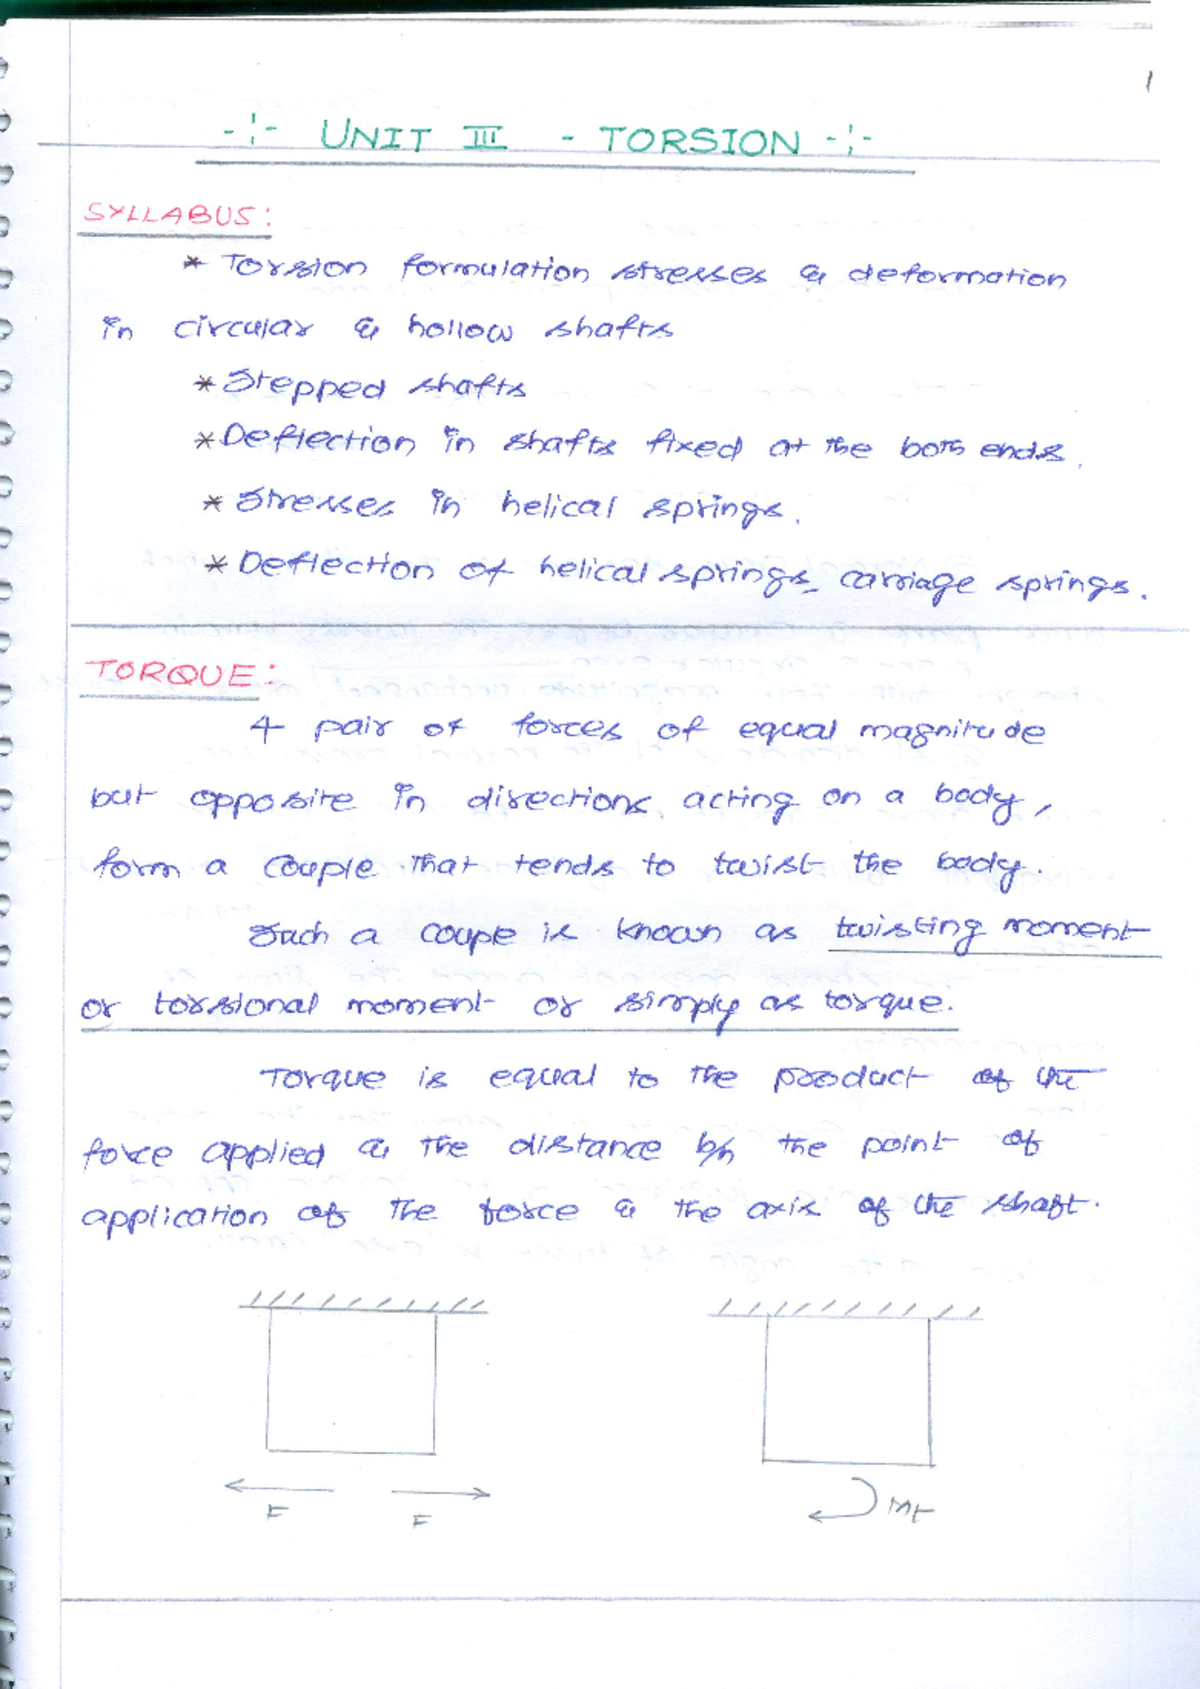 1
-:- UNIT III - TORSION -:-
SYLLABUS:
* Torsion formulation stresses & deformation
in circular & hollow shafts
* Stepped shafts
* Deflection in shafts fixed at the both ends.
* Stresses in helical springs.
* Deflection of helical springs, carriage springs.
TORQUE:
A pair of forces of equal magnitude
but opposite in directions acting on a body,
form a couple that tends to twist the body.
Such a coupe is known as twisting moment
or torsional moment or simply as torque.
Torque is equal to the product of the
force applied & the distance b/n the point of
application of the force & the axis of the shaft.
F F Mt